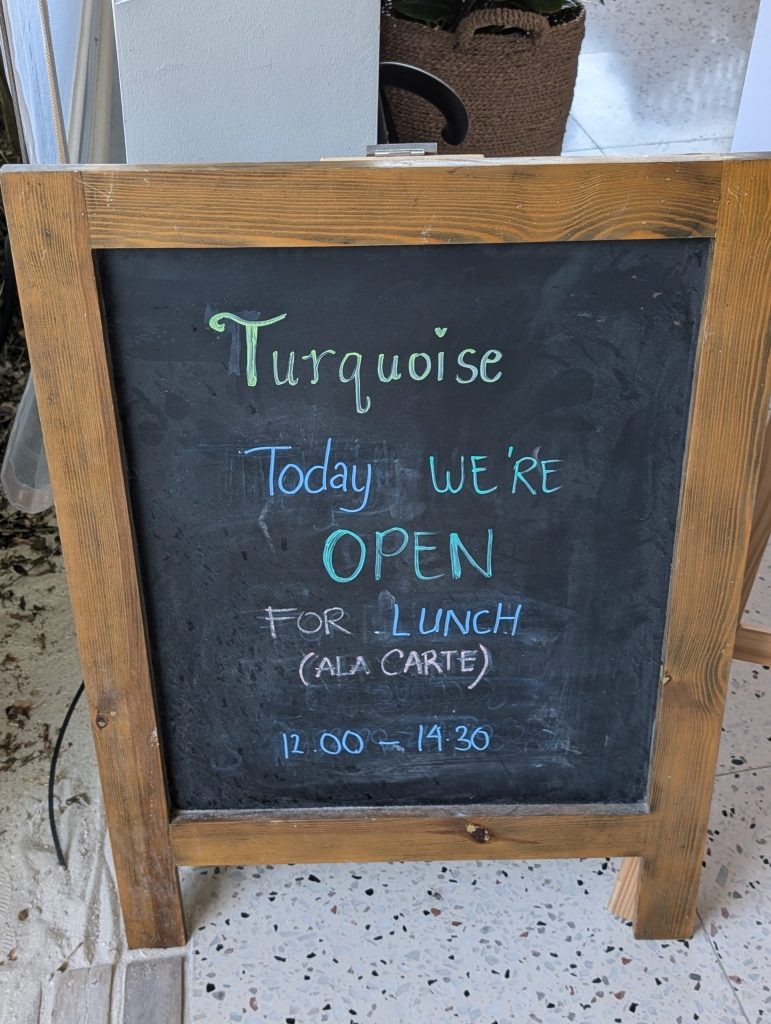 Turquoise
Today WE'RE
OPEN
FOR LUNCH
(ALA CARTE)
12.00 - 14.30